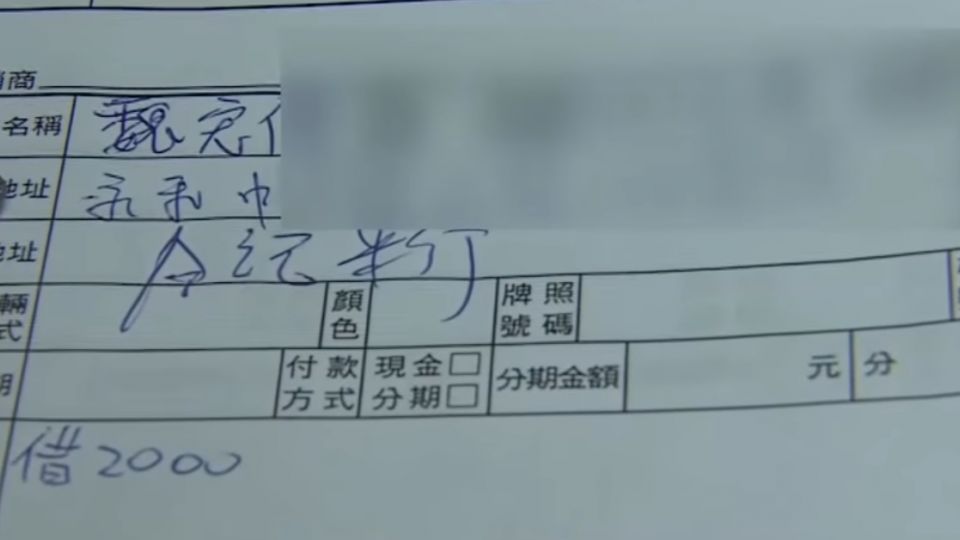 商
名稱 魏宏
地址 永和市
地址
輛式 顏色 牌照號碼
期 付款方式 現金□ 分期□ 分期金額 元 分
借2000